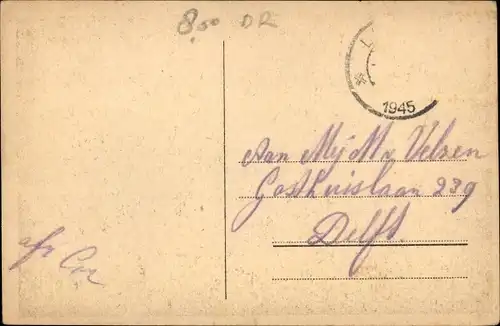 8,00 DR
1945
Aan Mej M v Velzen
Gasthuislaan 239
Delft
afz Cor